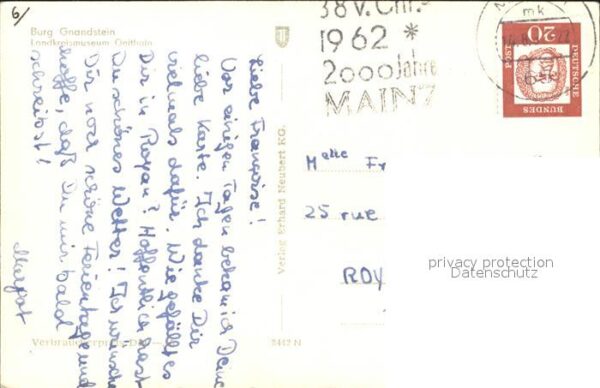 6/
Burg Gnandstein
Landkreismuseum Geithain
38 v. Chr.
1962 *
2000 Jahre
MAINZ
mk
20
DEUTSCHE
BUNDES
POST
Liebe Françoise!
Vor einigen Tagen bekam ich Deine
liebe Karte. Ich danke Dir
vielmals dafür. Wie gefällt es
Dir in Royan? Hoffentlich hast
Du schönes Wetter! Ich wünsche
Dir noch schöne Ferientage und
hoffe, daß Du mir bald
schreibst!
Margot
Verlag Erhard Neubert KG.
Verbraucherpreis
2442 N
Melle Fr
25 rue
ROY
privacy protection
Datenschutz